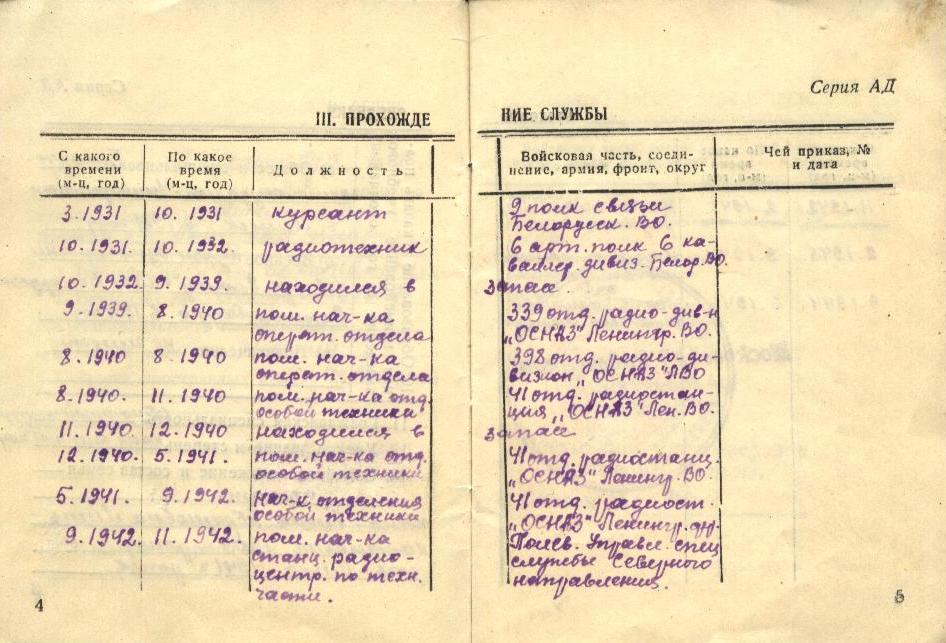 Серия АД
III. ПРОХОЖДЕ
НИЕ СЛУЖБЫ
С какого времени (м-ц, год)
По какое время (м-ц, год)
Должность
Войсковая часть, соеди-
нение, армия, фронт, округ
Чей приказ, №
и дата
3.1931 10.1931 курсант 9 полк связи
Белорусск. ВО.
10.1931. 10.1932. радиотехник 6 арт. полк 6 ка-
валер. дивиз. Белор. ВО.
10.1932. 9.1939. находился в запасе.
9.1939. 8.1940 пом. нач-ка 339 отд. радио-див-н
операт. отдела „ОСНАЗ" Ленингр. ВО.
8.1940 8.1940 пом. нач-ка 398 отд. радио-ди-
операт. отдела визион „ОСНАЗ" ЛВО
8.1940. 11.1940 пом. нач-ка отд. 41 отд. радиостан-
особой техники ция „ОСНАЗ" Лен. ВО.
11.1940. 12.1940 находился в запасе
12.1940. 5.1941. пом. нач-ка отд. 41 отд. радиостанц.
особой техники „ОСНАЗ" Ленингр. ВО.
5.1941. 9.1942. нач-к отделения 41 отд. радиост.
особой техники „ОСНАЗ" Ленингр. фр.
9.1942. 11.1942. пом. нач-ка Полев. Управл. спец
станц. радио- службы Северного
центр. по техн. направления.
части.
4
5